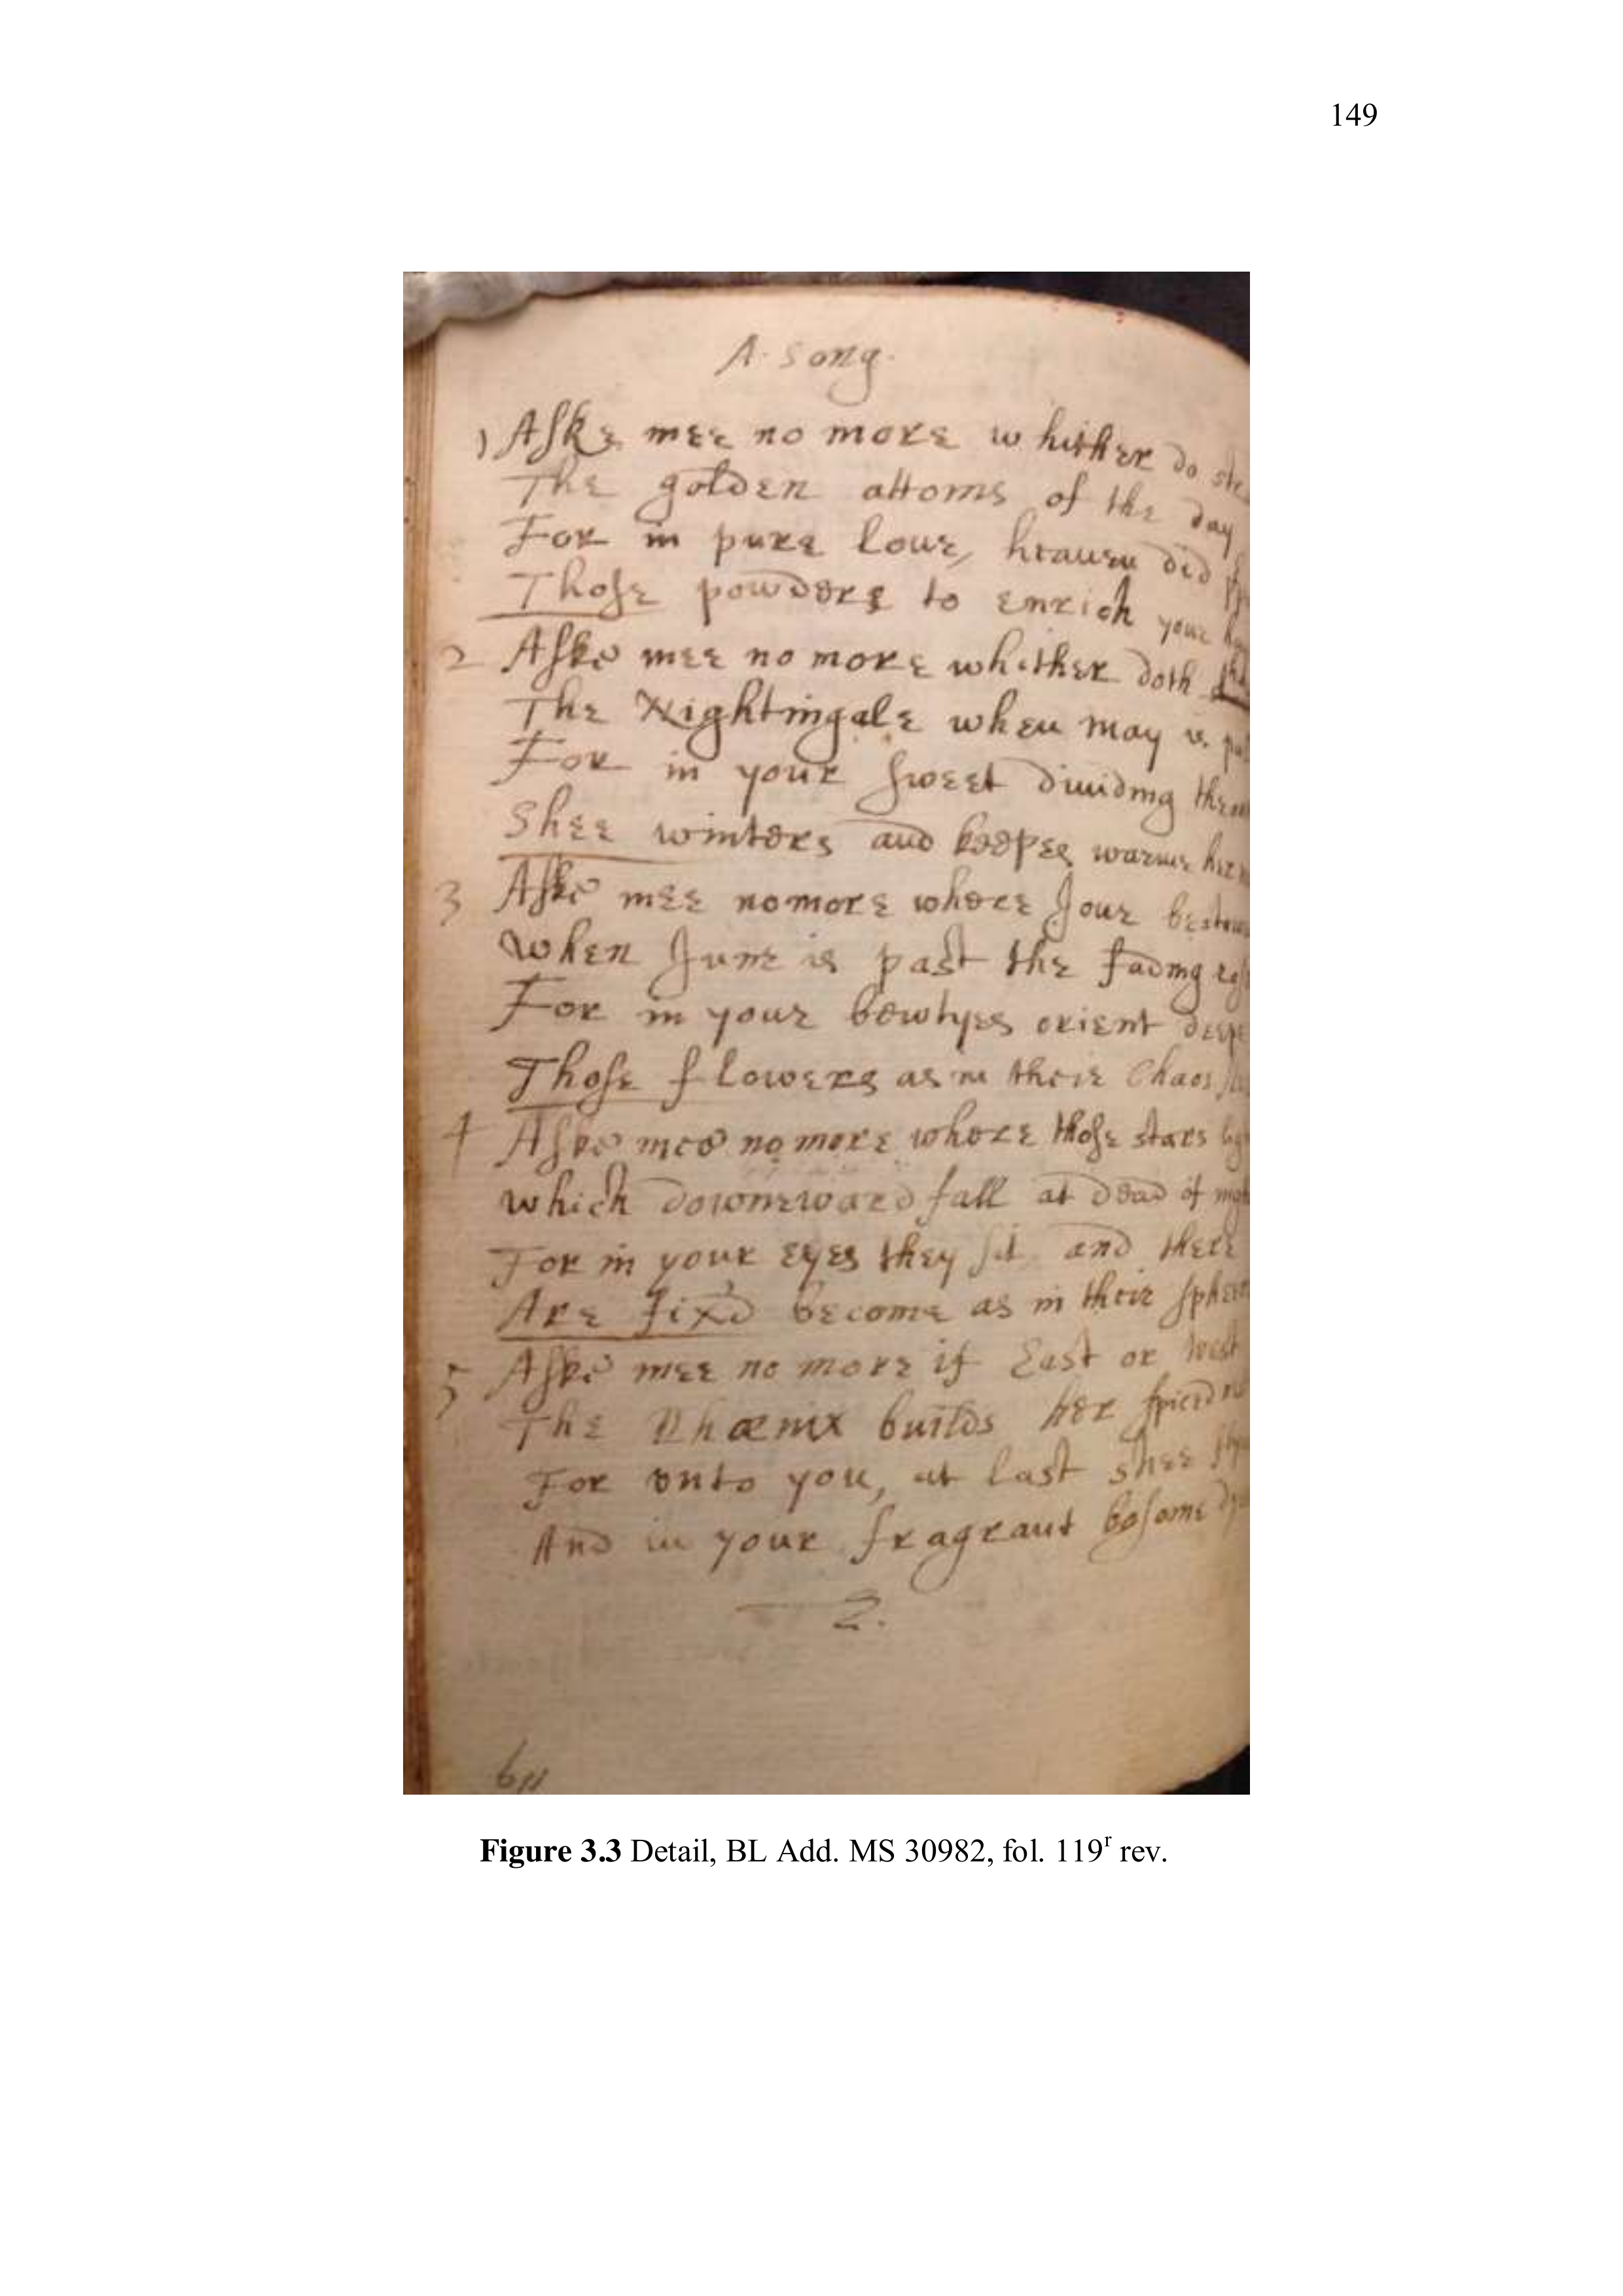 149
A. song.
1 Aske mee no more whither do
The golden attoms of the day
For in pure loue, heauen did
Those powders to enrich your
2 Aske mee no more whither doth
The Nightingale when may is
For in your sweet diuiding
Shee winters and keepes warme her
3 Aske mee no more where Joue
When June is past the fading
For in your bewtyes orient
Those flowers as in their Chaos
4 Aske mee no more where those stars
which downeward fall at dead of
For in your eyes they sit and there
Are fix'd become as in their
5 Aske mee no more if East or west
The Phœnix builds her spiced
For vnto you, at last shee
And in your fragrant bosome
2.
Figure 3.3 Detail, BL Add. MS 30982, fol. 119r rev.